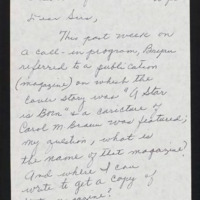 Dear Sirs,
This past week on
a call-in program,
referred to a publication
(magazine) on which the
cover story was "A Star
is Born" & a caricture of
Carol M. Braun was featured;
my question, what is
the name of that magazine?
And where I can
write to get a copy of